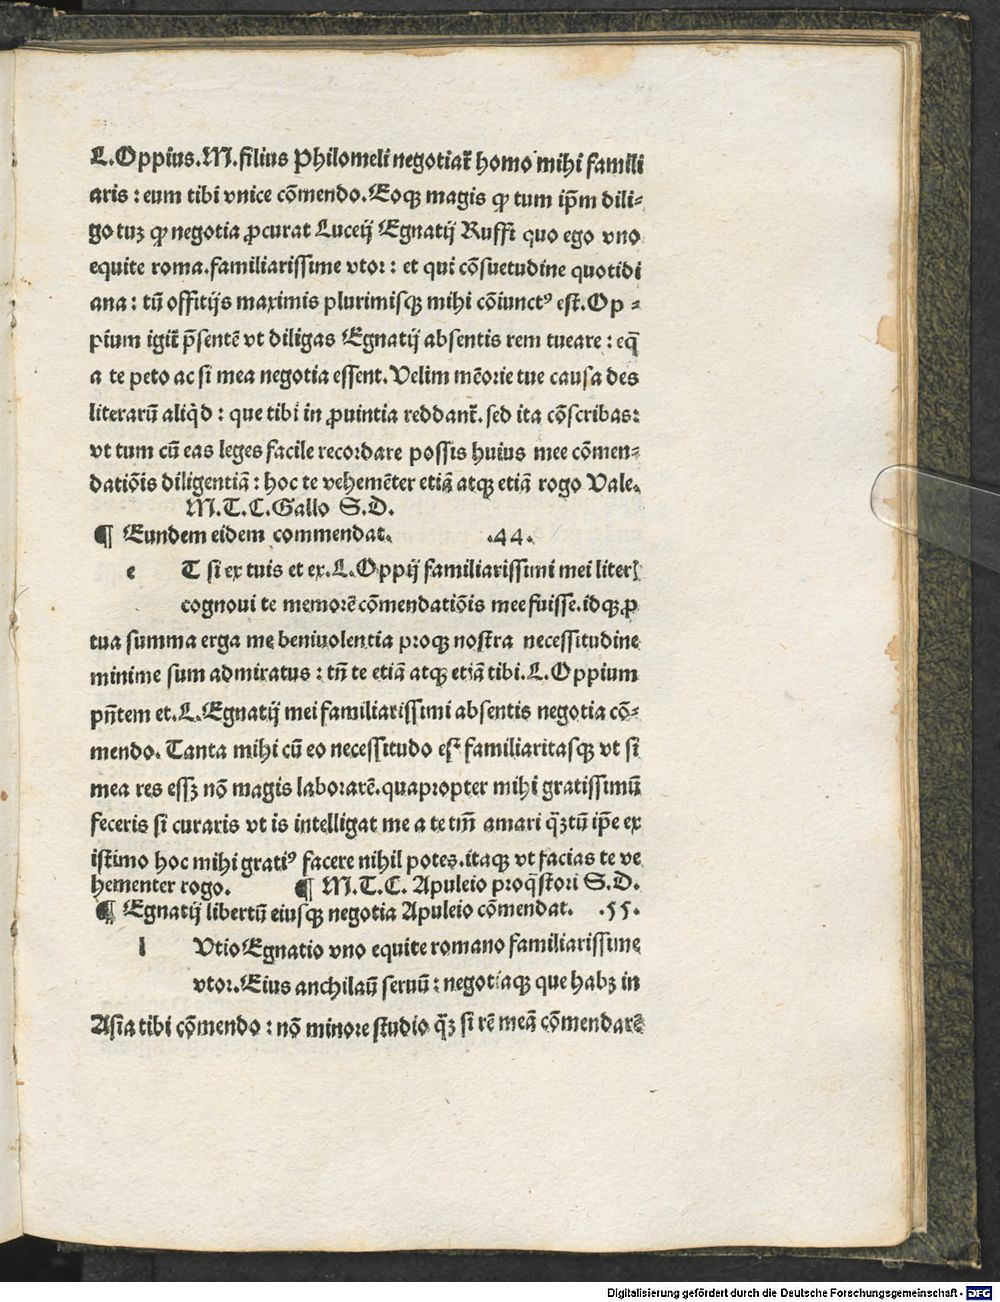 L.Oppius.M.filius Philomeli negotiat᷑ homo mihi famili
aris : eum tibi vnice cōmendo.Eoqꝫ magis ꝙ tum ip̄m dili⸗
go tuꝫ ꝙ negotia ꝓcurat Luceij Egnatij Ruffi quo ego vno
equite roma.familiarissime vtor : et qui cōsuetudine quotidi
ana : tū offitijs maximis plurimisqꝫ mihi cōiunctꝰ est.Op ⸗
pium igit᷑ p̄sentē vt diligas Egnatij absentis rem tueare : eq̄
a te peto ac si mea negotia essent.Velim mēorie tue causa des
literarū aliq̇d : que tibi in ꝓuintia reddant᷑.sed ita cōscribas:
vt tum cū eas leges facile recordare possis huius mee cōmen⸗
datiōis diligentiā : hoc te vehemēter etiā atqꝫ etiā rogo Vale.
M.T.C.Gallo S.D.
¶ Eundem eidem commendat. .44.
e T si ex tuis et ex.L.Oppij familiarissimi mei literꝭ
cognoui te memorē cōmendatiōis mee fuisse.idqꝫ ꝓ
tua summa erga me beniuolentia proqꝫ nostra necessitudine
minime sum admiratus : tn̄ te etiā atqꝫ etiā tibi.L.Oppium
pn̄tem et.L.Egnatij mei familiarissimi absentis negotia cō⸗
mendo. Tanta mihi cū eo necessitudo est familiaritasqꝫ vt si
mea res essꝫ nō magis laborarē.quapropter mihi gratissimū
feceris si curaris vt is intelligat me a te tm̄ amari q̄ꝫtū ip̄e ex
istimo hoc mihi gratiꝰ facere nihil potes.itaqꝫ vt facias te ve
hementer rogo. ¶ M.T.C. Apuleio proq̄stori S.D.
¶ Egnatij libertū eiusqꝫ negotia Apuleio cōmendat. .55.
l Vtio Egnatio vno equite romano familiarissime
vtor.Eius anchilaū seruū : negotiaqꝫ que habꝫ in
Asia tibi cōmendo : nō minore studio q̄ꝫ si rē meā cōmendarē
Digitalisierung gefördert durch die Deutsche Forschungsgemeinschaft - DFG